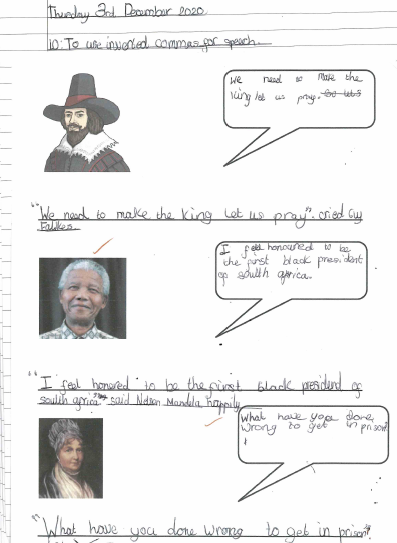 Thursday 3rd December 2020
LO: To use inverted commas for speech.
We need to make the
King let us pray.
"We need to make the King let us pray". cried Guy
Fawkes.
I feel honoured to be
the first black president
of south africa.
"I feel honored to be the first black president of
south africa" said Nelson Mandela happily
What have you done
wrong to get in prison?
"What have you done wrong to get in prison"